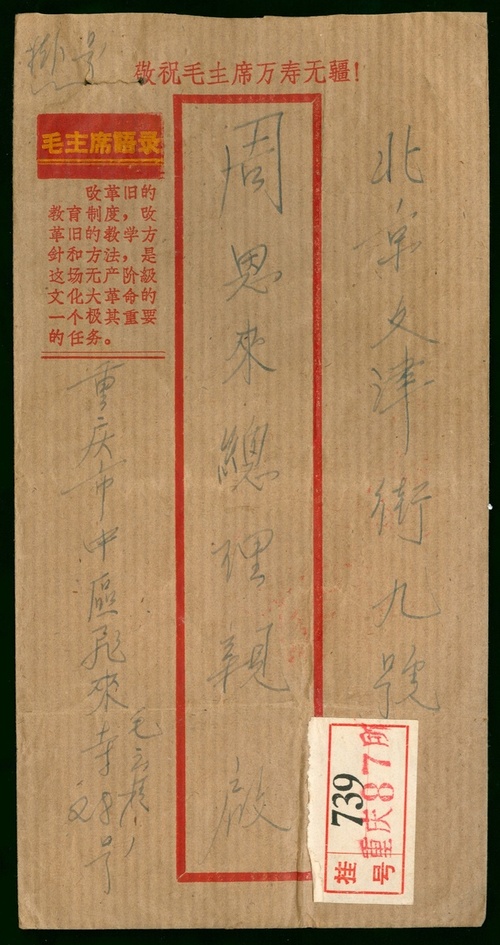 掛号
敬祝毛主席万寿无疆!
毛主席語录
改革旧的
教育制度，改
革旧的教学方
針和方法，是
这场无产阶級
文化大革命的
一个极其重要
的任务。
北京文津街九號
周恩來總理親啟
重庆市中區飛來寺
号
挂号
739
重庆87所